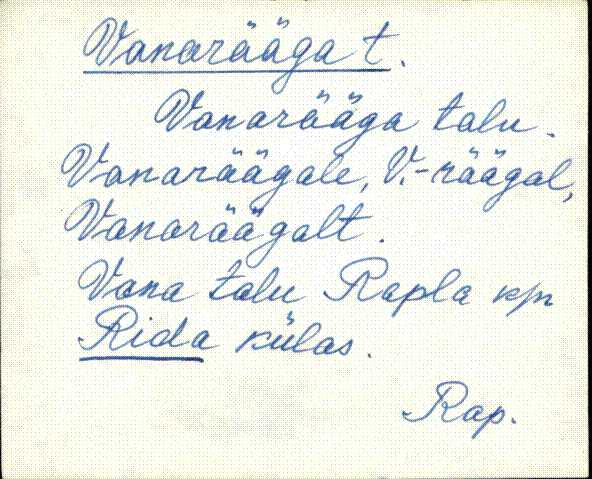 Vanarääga t.
Vanarääga talu.
Vanaräägale, V.-räägal,
Vanaräägalt.
Vana talu Rapla kpn
Rida külas.
Rap.